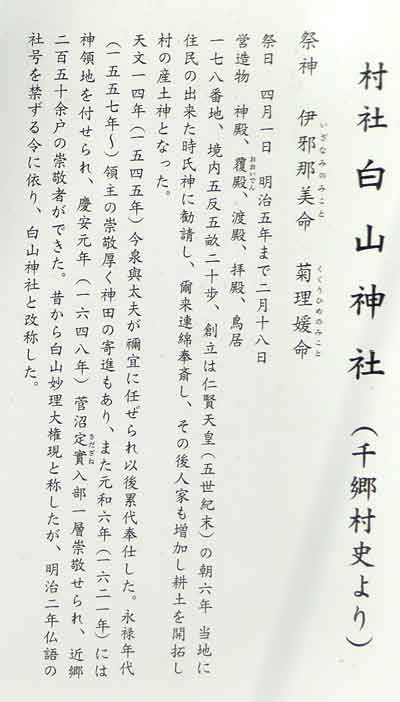 村社 白山神社（千郷村史より）
祭神 伊邪那美命 菊理媛命
いざなみのみこと くくりひめのみこと
祭日 四月一日 明治五年まで二月十八日
営造物 神殿、覆殿、渡殿、拝殿、鳥居
おおいでん
一七八番地、境内五反五畝二十歩、創立は仁賢天皇（五世紀末）の朝六年 当地に
住民の出来た時氏神に勧請し、爾来連綿奉斎し、その後人家も増加し耕土を開拓し
村の産土神となった。
天文一四年（一五四五年）今泉與太夫が禰宜に任ぜられ以後累代奉仕した。永禄年代
（一五五七年～）領主の崇敬厚く神田の寄進もあり、また元和六年（一六二一年）には
神領地を付せられ、慶安元年（一六四八年）菅沼定實入部一層崇敬せられ、近郷
さだざね
二百五十余戸の崇敬者ができた。昔から白山妙理大権現と称したが、明治二年仏語の
社号を禁ずる令に依り、白山神社と改称した。